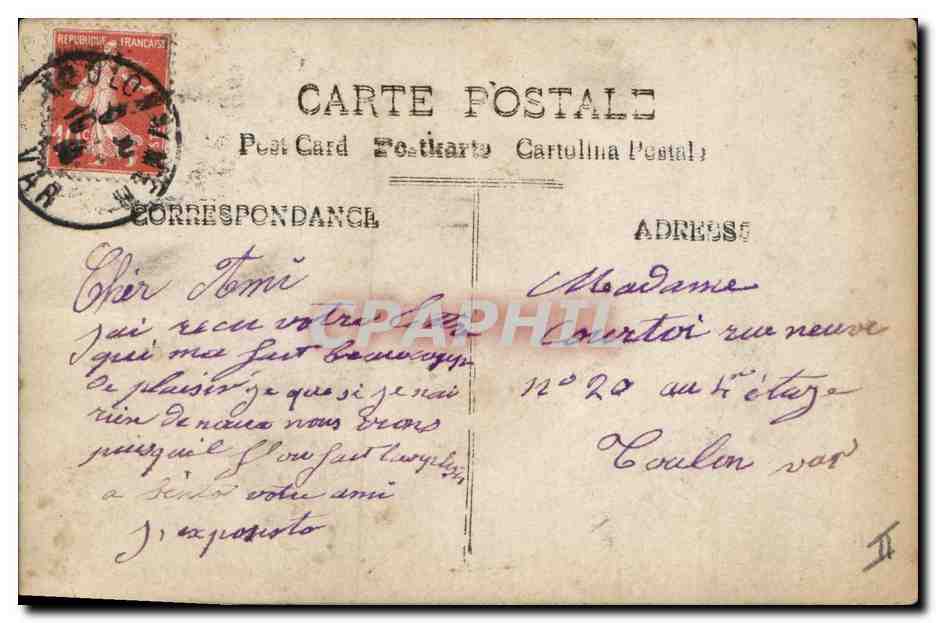 REPUBLIQUE FRANÇAISE
TOULON
VAR
CARTE POSTALE
Post Card Postkarte Cartolina Postale
CORRESPONDANCE
ADRESSE
Cher Ami
j'ai recu votre
qui ma fait beaucoup
de plaisir je que si je nai
rien de
nous
puisquil fait
a votre ami
j,
Madame
Courtoi rue neuve
n° 20 au 4e étage
Toulon var
CPAPHIL
II